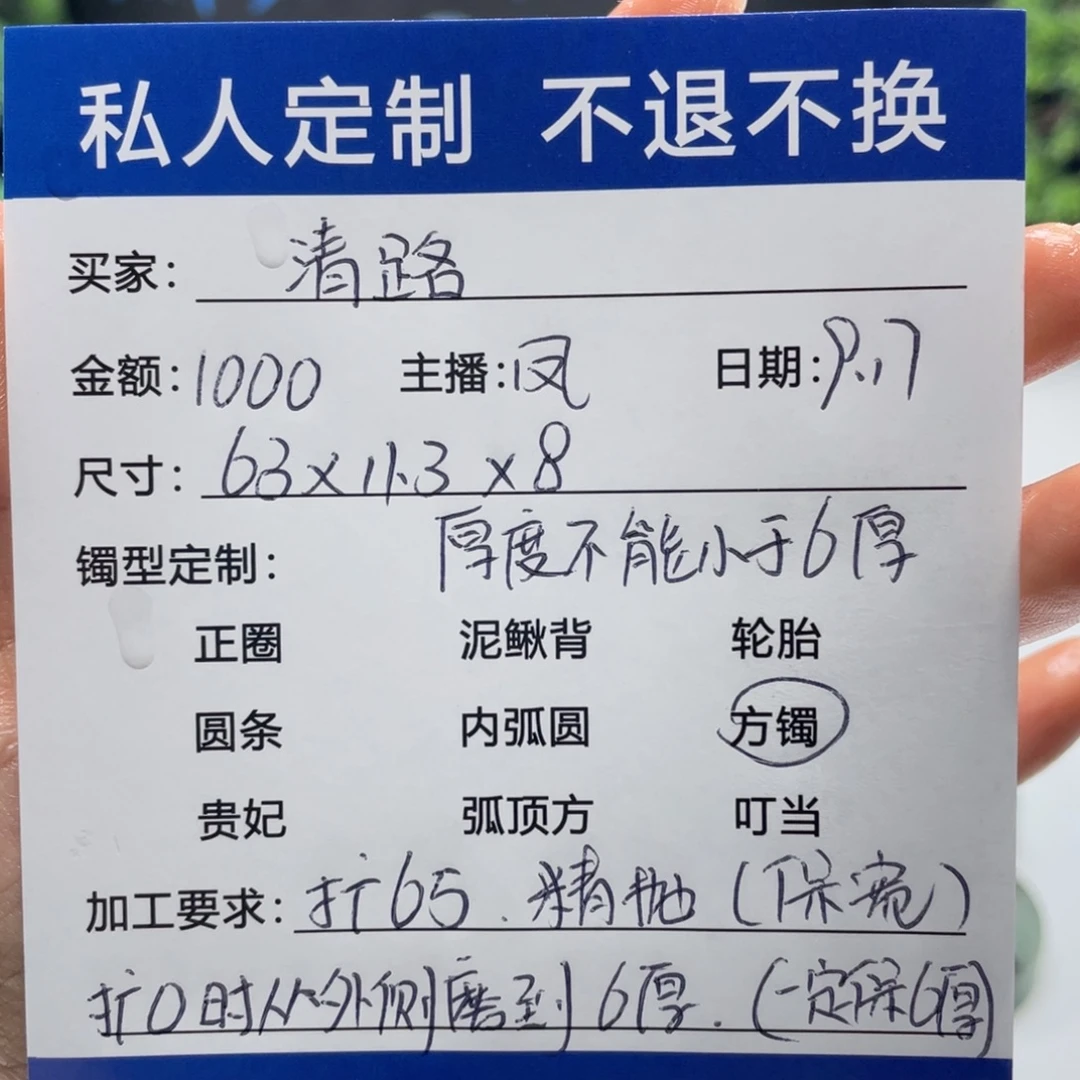 私人定制 不退不换
买家：清路
金额：1000 主播：凤 日期：9.17
尺寸：63×11.3×8
厚度不能小于6厚
镯型定制：
正圈 泥鳅背 轮胎
圆条 内弧圆 方镯
贵妃 弧顶方 叮当
加工要求：扩65.精抛（保宽）
扩口时从外侧磨到6厚.（一定保6厚）